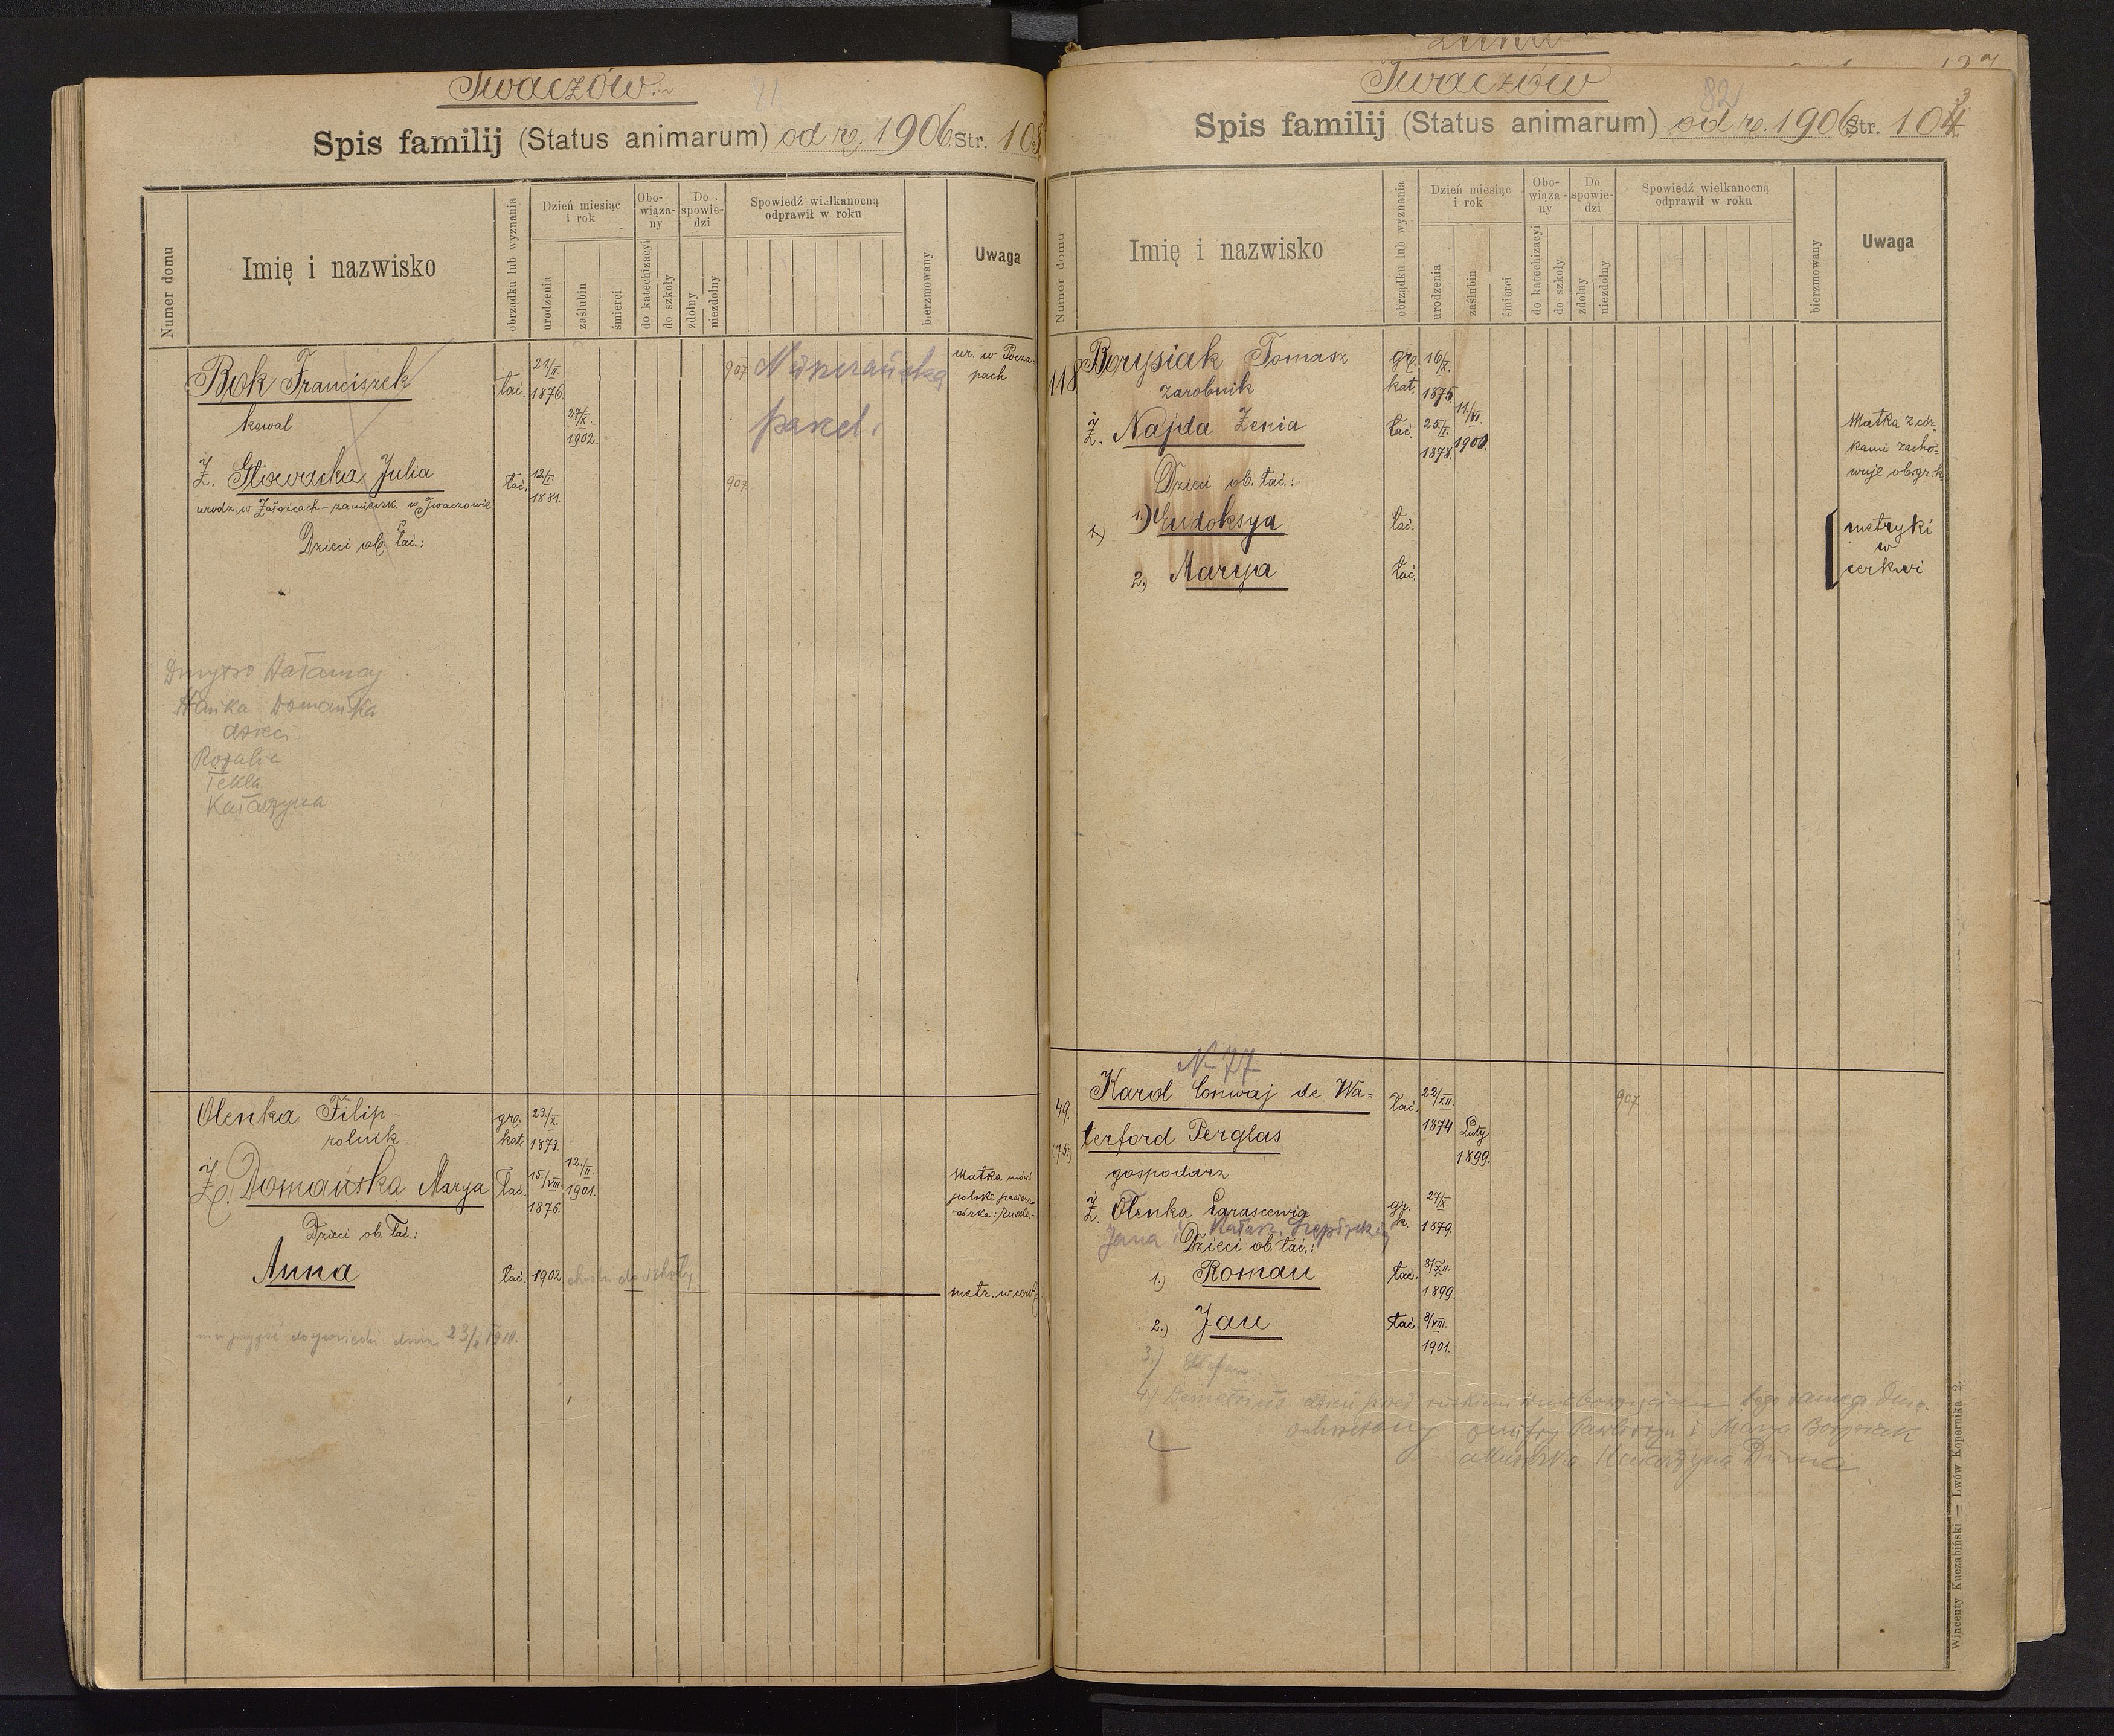 Iwaczów
Spis familij (Status animarum) od r. 1906 Str. 103
Numer domu
Imię i nazwisko
obrządku lub wyznania
Dzień miesiąc i rok
urodzenia
zaślubin
śmierci
Obowiązany
do katechizacyi
do szkoły
Do spowiedzi
zdolny
niezdolny
Spowiedź wielkanocną odprawił w roku
bierzmowany
Uwaga
Bok Franciszek łac. 21/II. 1876. 907
kowal 27/X. 1902.
Ż. Głowacka Julia łac. 12/I. 1881. 907
urodz. w Załoźcach - zamieszk. w Iwaczowie
Dzieci ob. łac.:
ur. w Pocza-
pach
parcel.
Dmytro Hałamaj
Hańka Domańska
dzieci
Rozalia
Tekla
Katarzyna
Olenka Filip gr. kat. 23/X. 1873.
rolnik
Ż. Domańska Marya łac. 15/VIII. 1876. 12./II. 1901.
Matka mówi
polski pacierz
Dzieci ob. łac.:
Anna łac. 1902 chodzi do szkoły
metr. w cerk.
dnia 23/ 1910.
Iwaczów
82
Spis familij (Status animarum) od r. 1906 Str. 104
3
Numer domu
Imię i nazwisko
obrządku lub wyznania
Dzień miesiąc i rok
urodzenia
zaślubin
śmierci
Obowiązany
do katechizacyi
do szkoły
Do spowiedzi
zdolny
niezdolny
Spowiedź wielkanocną odprawił w roku
bierzmowany
Uwaga
118 Borysiak Tomasz gr. kat. 16/X. 1875.
zarobnik
Ż. Najda Zenia łac. 25/I. 1878. 11/VI. 1900.
Matka z cór-
kami zacho-
wuje ob. gr. k.
Dzieci ob. łac.:
1) 1.) Eudoksya łac.
2) Marya łac.
metryki
w
cerkwi
N 77
49. Karol Conwaj de Wa- łac. 22/XII. 1874. 907
(75.) terford Perglas Luty 1899.
gospodarz
Ż. Olenka Parascewia gr. k. 27/X. 1879.
Jana i Katarz.
Dzieci ob. łac.:
1.) Roman łac. 8/XII. 1899.
2.) Jan łac. 8/VIII. 1901.
3.) Stefan
4.) Demetrius
i Marya Borysiak
akuszerka Katarzyna
Wincenty Kuczabiński — Lwów Kopernika 2.